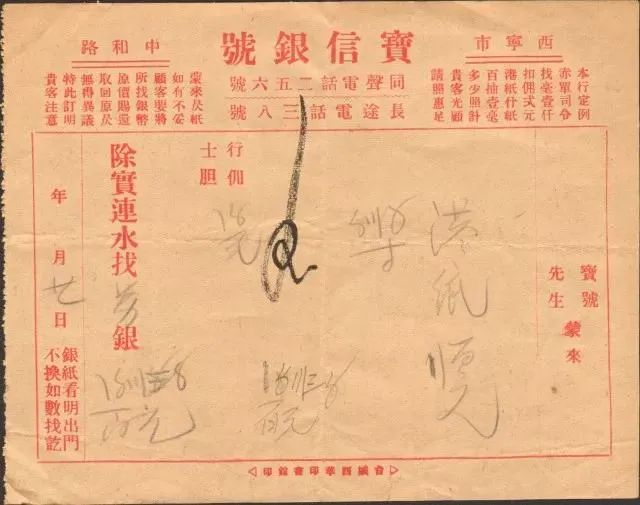 西寧市
寶信銀號
中和路
同聲電話二五六號
長途電話三八號
本行定例
赤軍司令
找毫壹仟
扣佣弍元
港紙什紙
百抽壹毫
多少照計
貴客光顧
請照惠足
蒙來仄紙
如有不妥
顧客要將
所找銀幣
原價賜還
取回原仄
無得異議
特此訂明
貴客注意
寶號
先生
蒙來
港紙
行佣
士胆
除實連水找 銀
年 月 廿日
銀紙看明出門
不換如數找訖
台城西華印書館印